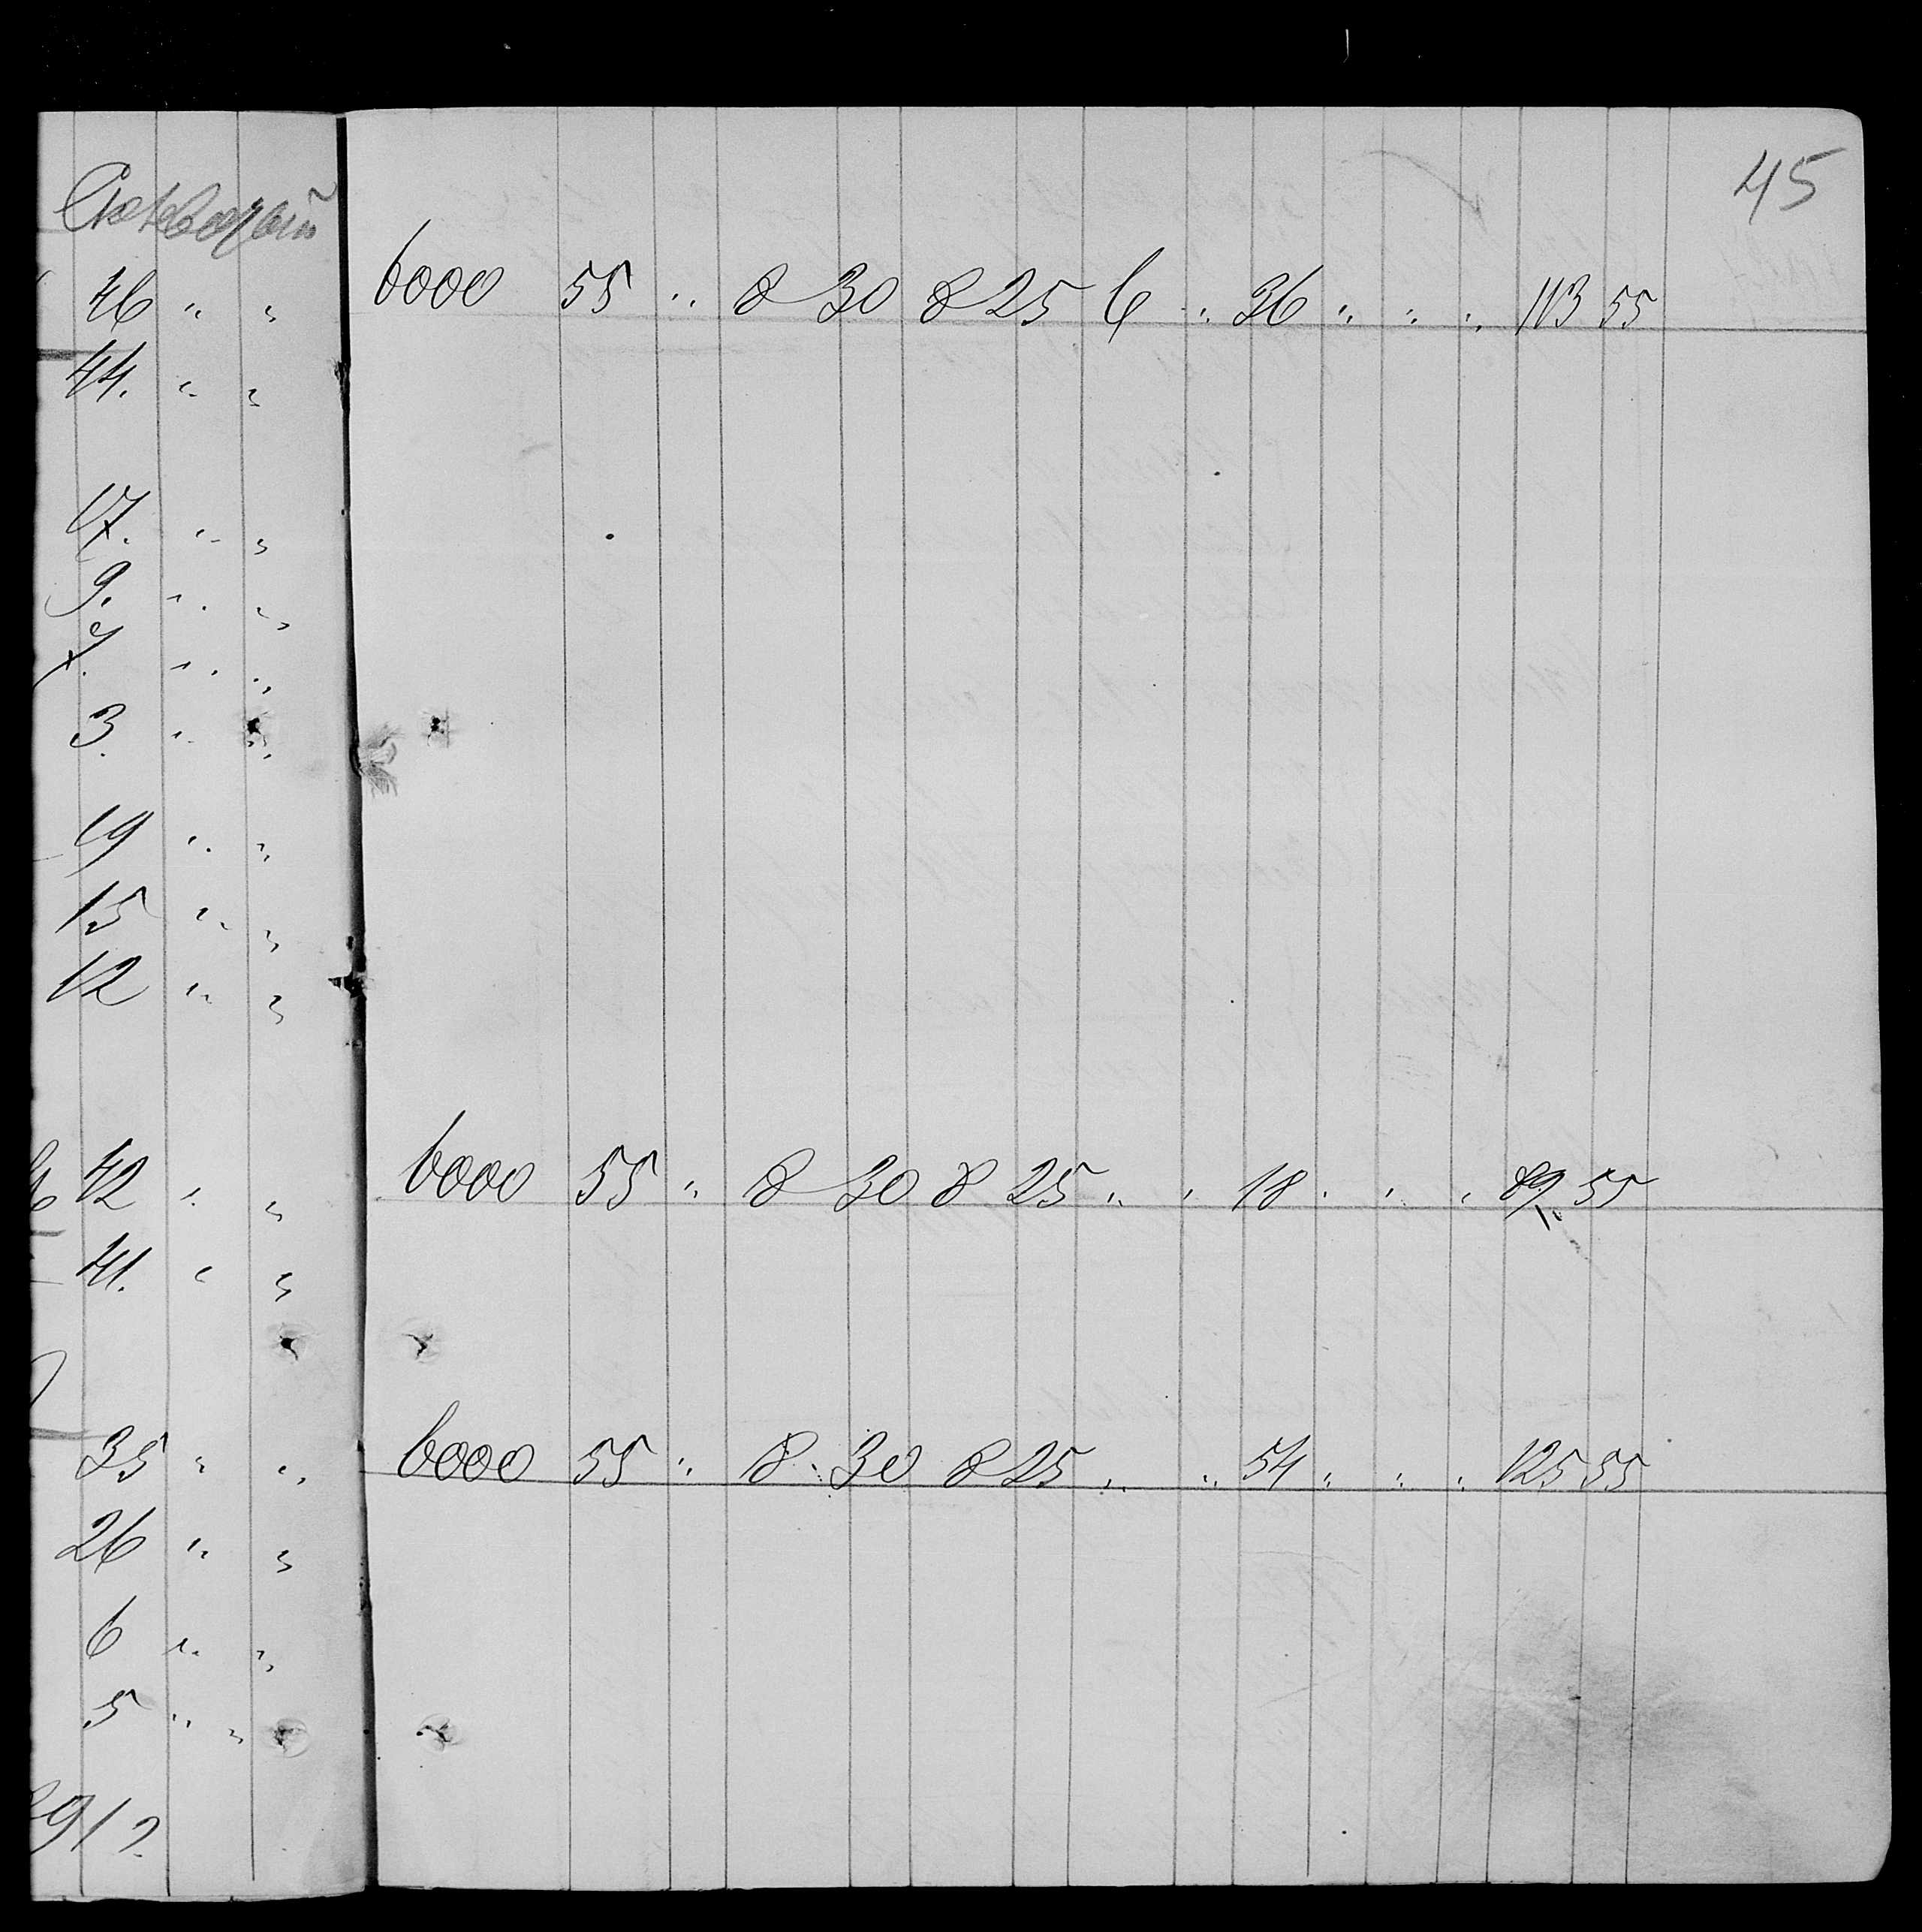 45
46 " " 6000 55 " 8 30 8 25 6 " 36 " " " 113 55
44. " "
17. " "
9. " "
7. " "
3. " "
19 " "
15 " "
12 " "
42 " " 6000 55 " 8 30 8 25 " " 18 " " " 89 55
41. " "
35 " " 6000 55 " 8 30 8 25 " " 54 " " " 125 55
26 " "
6 " "
5 " "